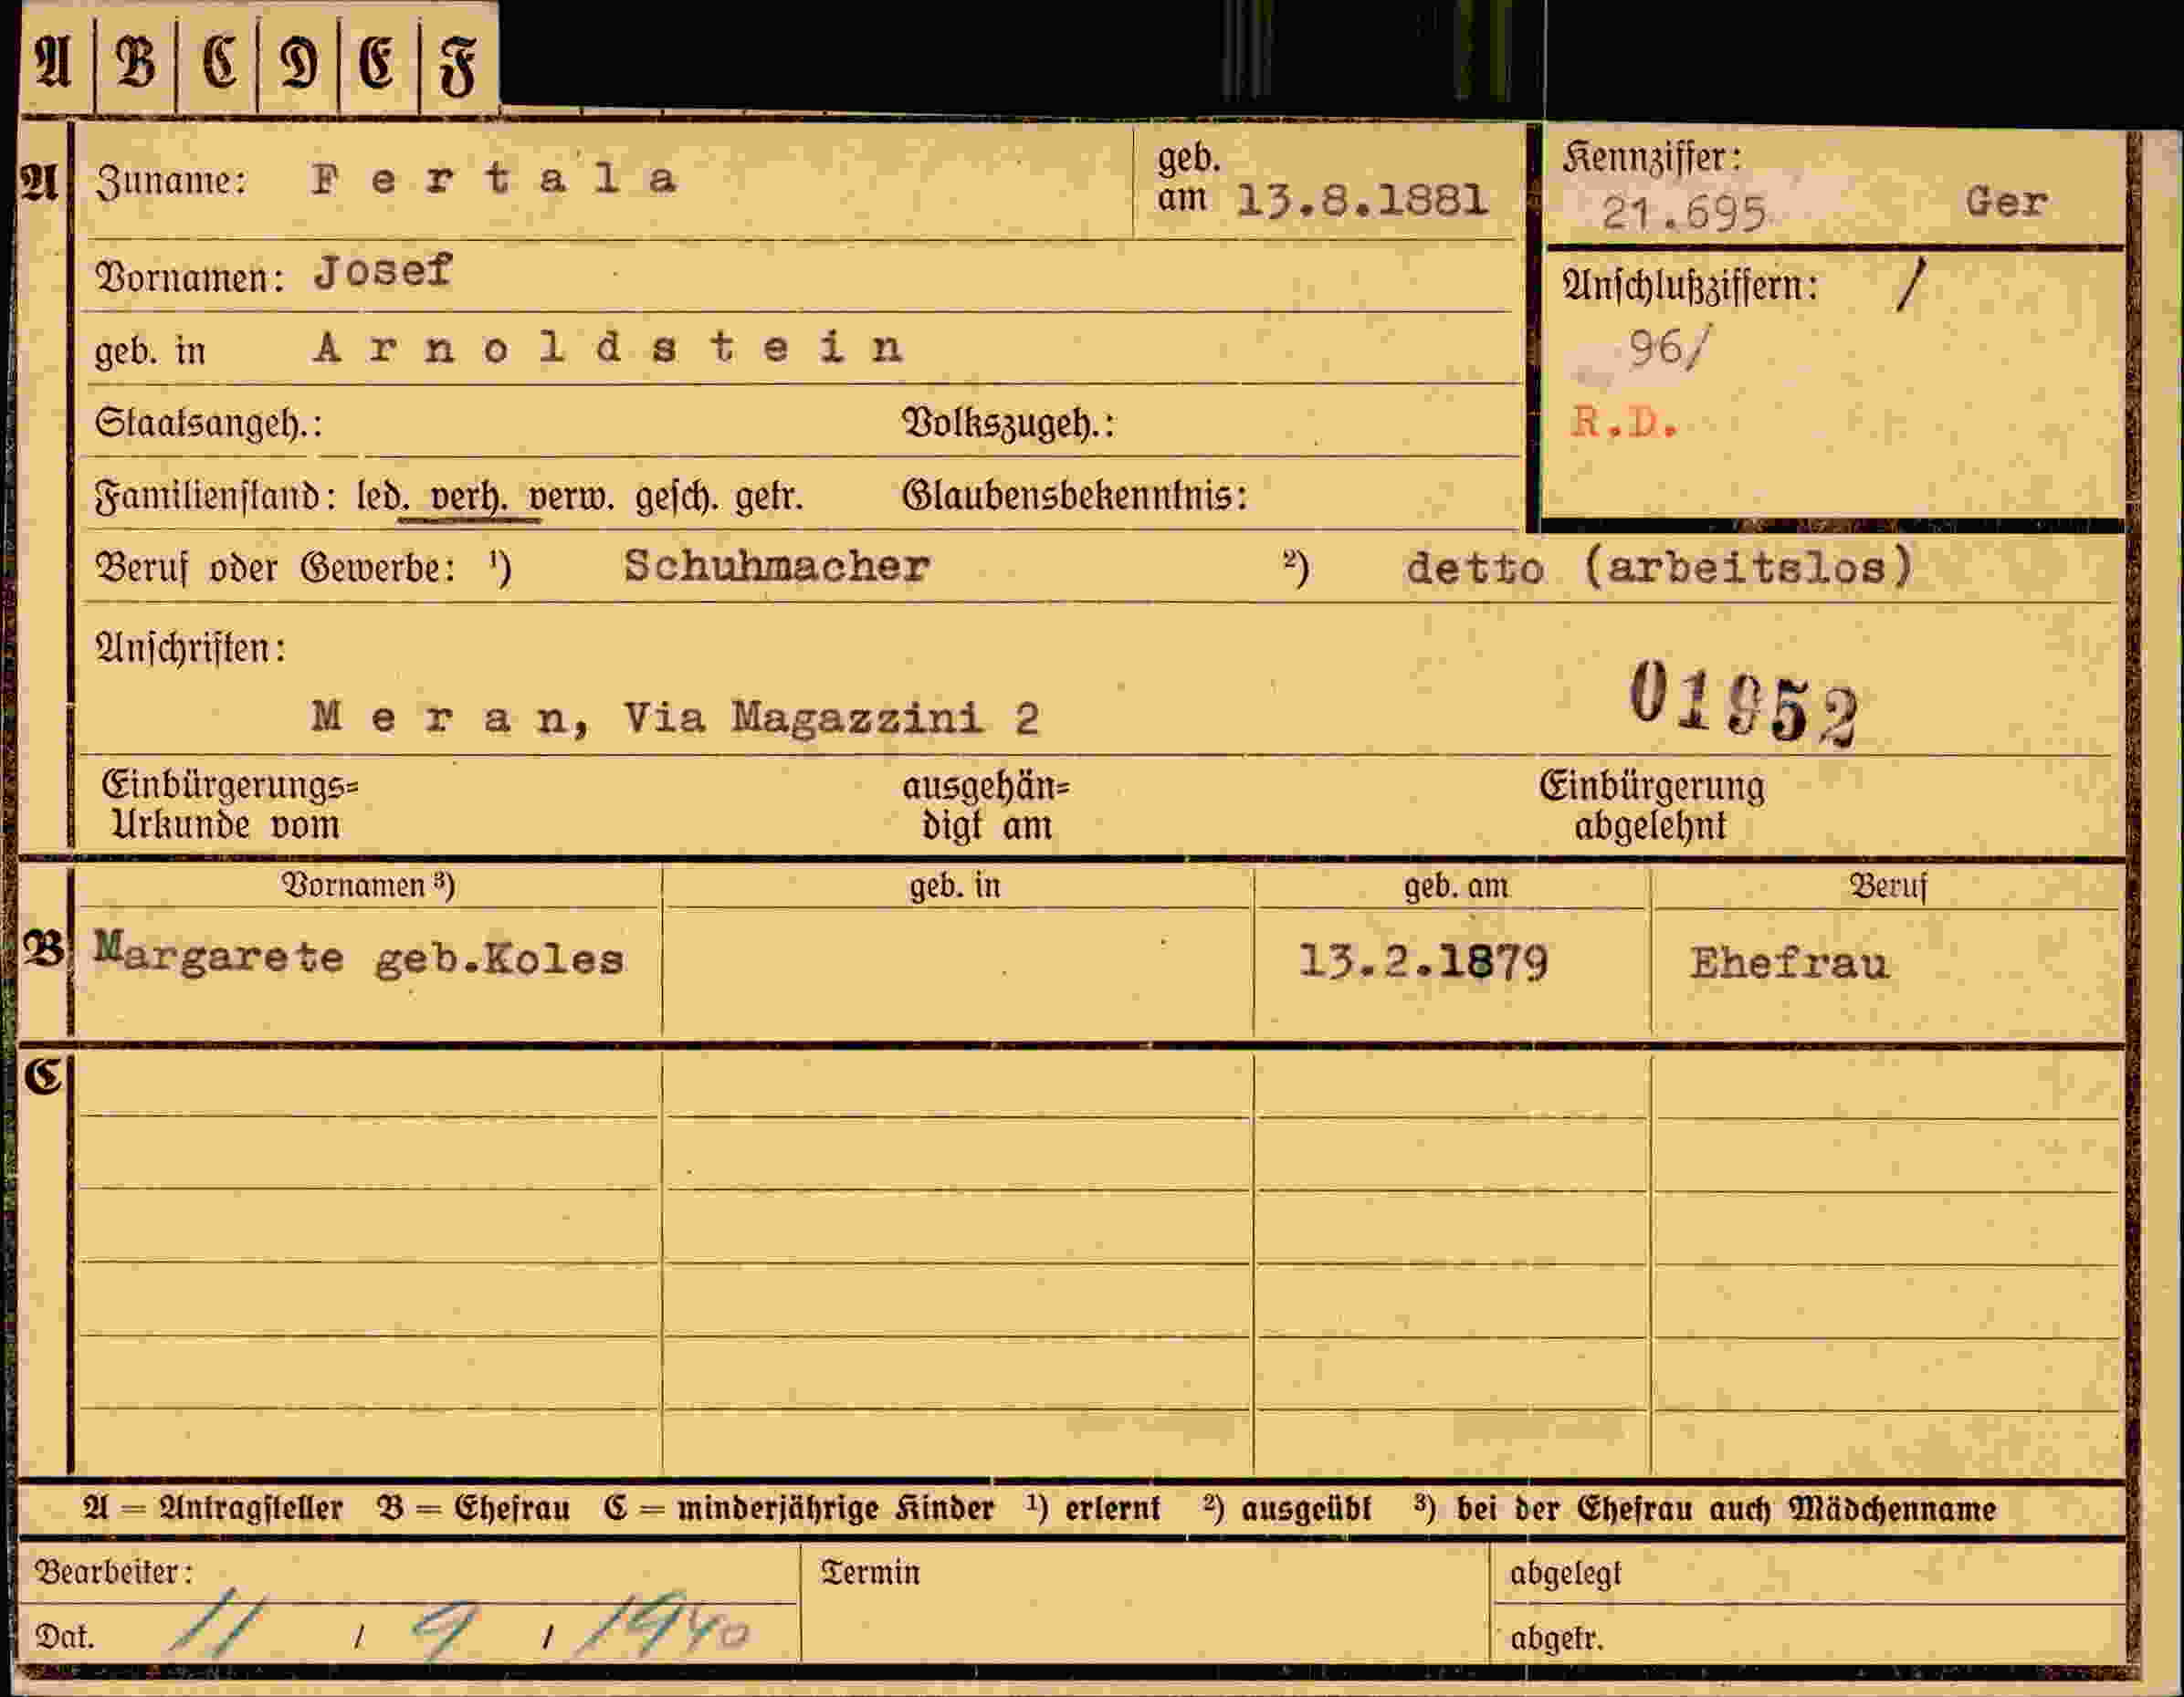 A B C D E F
A Zuname: Fertala geb. am 13.8.1881 Kennziffer: 21.695 Ger
Vornamen: Josef Anschlußziffern: /
geb. in Arnoldstein 96/
Staatsangeh.: Volkszugeh.: R.D.
Familienstand: led. verh. verw. gesch. getr. Glaubensbekenntnis:
Beruf oder Gewerbe: ¹) Schuhmacher ²) detto (arbeitslos)
Anschriften:
Meran, Via Magazzini 2 01952
Einbürgerungs= ausgehän= Einbürgerung
Urkunde vom digt am abgelehnt
Vornamen ³) geb. in geb. am Beruf
B Margarete geb.Koles 13.2.1879 Ehefrau
C
A = Antragsteller B = Ehefrau C = minderjährige Kinder ¹) erlernt ²) ausgeübt ³) bei der Ehefrau auch Mädchenname
Bearbeiter: Termin abgelegt
Dat. 11 / 9 / 1940 abgetr.